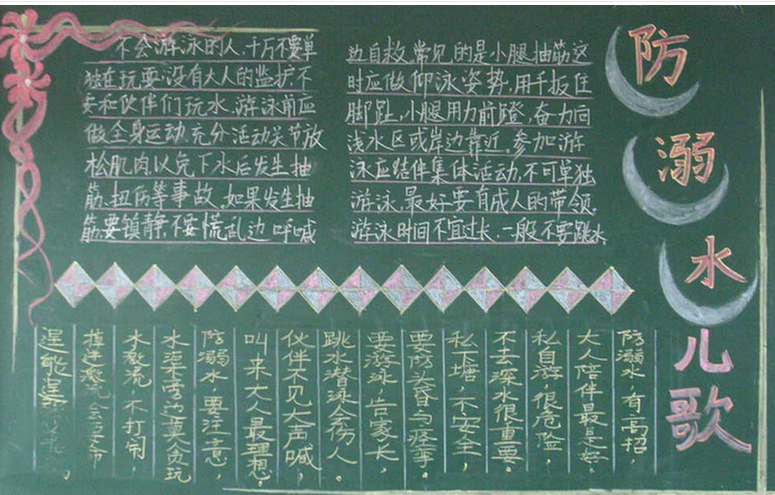 防溺水儿歌
不会游泳的人，千万不要单
独在玩耍，没有大人的监护不
要和伙伴们玩水，游泳前应
做全身运动，充分活动关节放
松肌肉，以免下水后发生抽
筋、扭伤等事故，如果发生抽
筋，要镇静，不要慌乱，边呼喊
边自救，常见的是小腿抽筋这
时应做仰泳姿势，用手扳住
脚趾，小腿用力前蹬，奋力向
浅水区或岸边靠近，参加游
泳应结伴集体活动，不可单独
游泳，最好要有成人的带领，
游泳时间不宜过长，一般不要跳水
防溺水，有高招，
大人陪伴最是好，
私自游，很危险，
不去深水很重要。
私下塘，不安全，
要防
要游泳，告家长，
跳水潜泳会伤人。
伙伴不见大声喊，
叫来大人最理想。
防溺水，要注意，
水渠旁边莫贪玩
水激流，不打闹，
掉进激流会要命
逞能逞